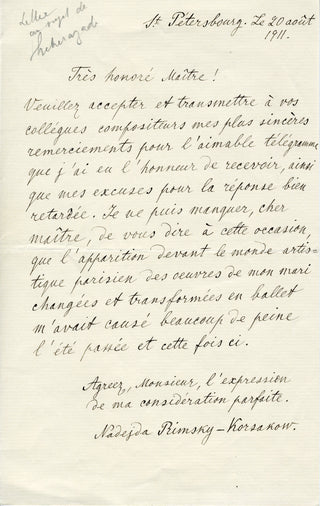 Lettre
au sujet de
Scheherazade
St. Pétersbourg. Le 20 août
1911.
Très honoré Maître!
Veuillez accepter et transmettre à vos
collègues compositeurs mes plus sincères
remerciements pour l'aimable télégramme
que j'ai eu l'honneur de recevoir, ainsi
que mes excuses pour la réponse bien
retardée. Je ne puis manquer, cher
maître, de vous dire à cette occasion,
que l'apparition devant le monde artis=
tique parisien des œuvres de mon mari
changées et transformées en ballet
m'avait causé beaucoup de peine
l'été passée et cette fois ci.
Agreez, Monsieur, l'expression
de ma considération parfaite.
Nadejda Rimsky-Korsakow.